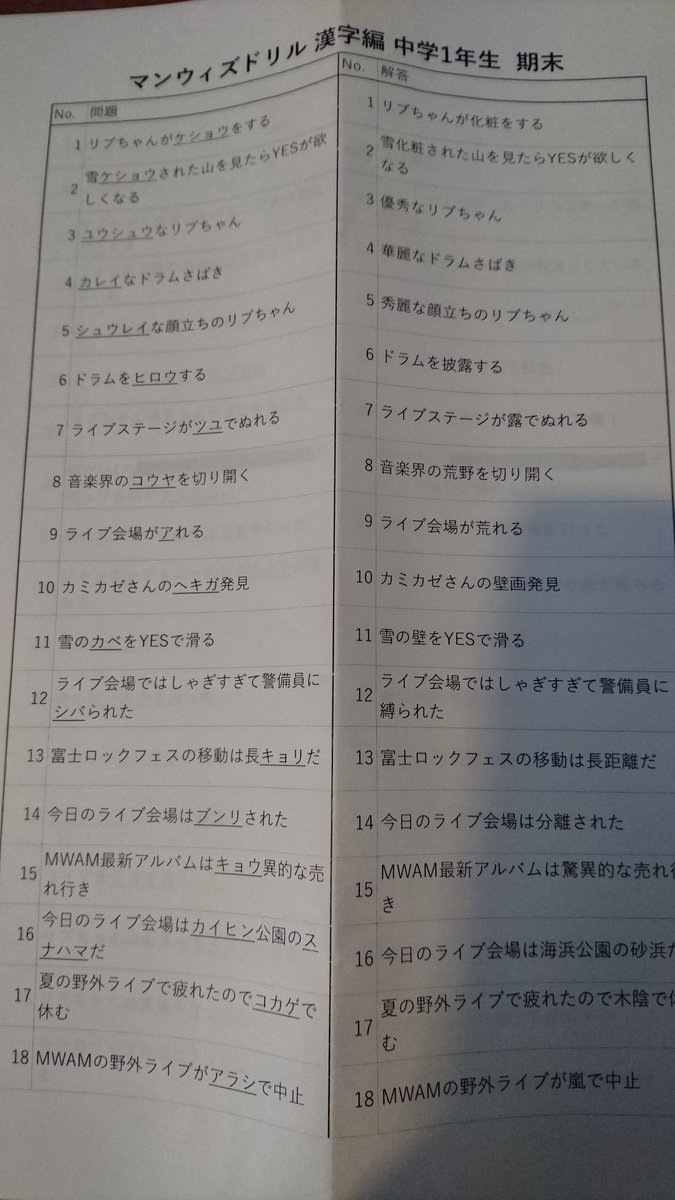 マンウィズドリル 漢字編 中学1年生 期末
No. 問題
1 リブちゃんがケショウをする
2 雪ケショウされた山を見たらYESが欲
しくなる
3 ユウシュウなリブちゃん
4 カレイなドラムさばき
5 シュウレイな顔立ちのリブちゃん
6 ドラムをヒロウする
7 ライブステージがツユでぬれる
8 音楽界のコウヤを切り開く
9 ライブ会場がアれる
10 カミカゼさんのヘキガ発見
11 雪のカベをYESで滑る
12 ライブ会場ではしゃぎすぎて警備員に
シバられた
13 富士ロックフェスの移動は長キョリだ
14 今日のライブ会場はブンリされた
15 MWAM最新アルバムはキョウ異的な売
れ行き
16 今日のライブ会場はカイヒン公園のス
ナハマだ
17 夏の野外ライブで疲れたのでコカゲで
休む
18 MWAMの野外ライブがアラシで中止
No. 解答
1 リブちゃんが化粧をする
2 雪化粧された山を見たらYESが欲しく
なる
3 優秀なリブちゃん
4 華麗なドラムさばき
5 秀麗な顔立ちのリブちゃん
6 ドラムを披露する
7 ライブステージが露でぬれる
8 音楽界の荒野を切り開く
9 ライブ会場が荒れる
10 カミカゼさんの壁画発見
11 雪の壁をYESで滑る
12 ライブ会場ではしゃぎすぎて警備員に
縛られた
13 富士ロックフェスの移動は長距離だ
14 今日のライブ会場は分離された
15 MWAM最新アルバムは驚異的な売れ行
き
16 今日のライブ会場は海浜公園の砂浜だ
17 夏の野外ライブで疲れたので木陰で休
む
18 MWAMの野外ライブが嵐で中止